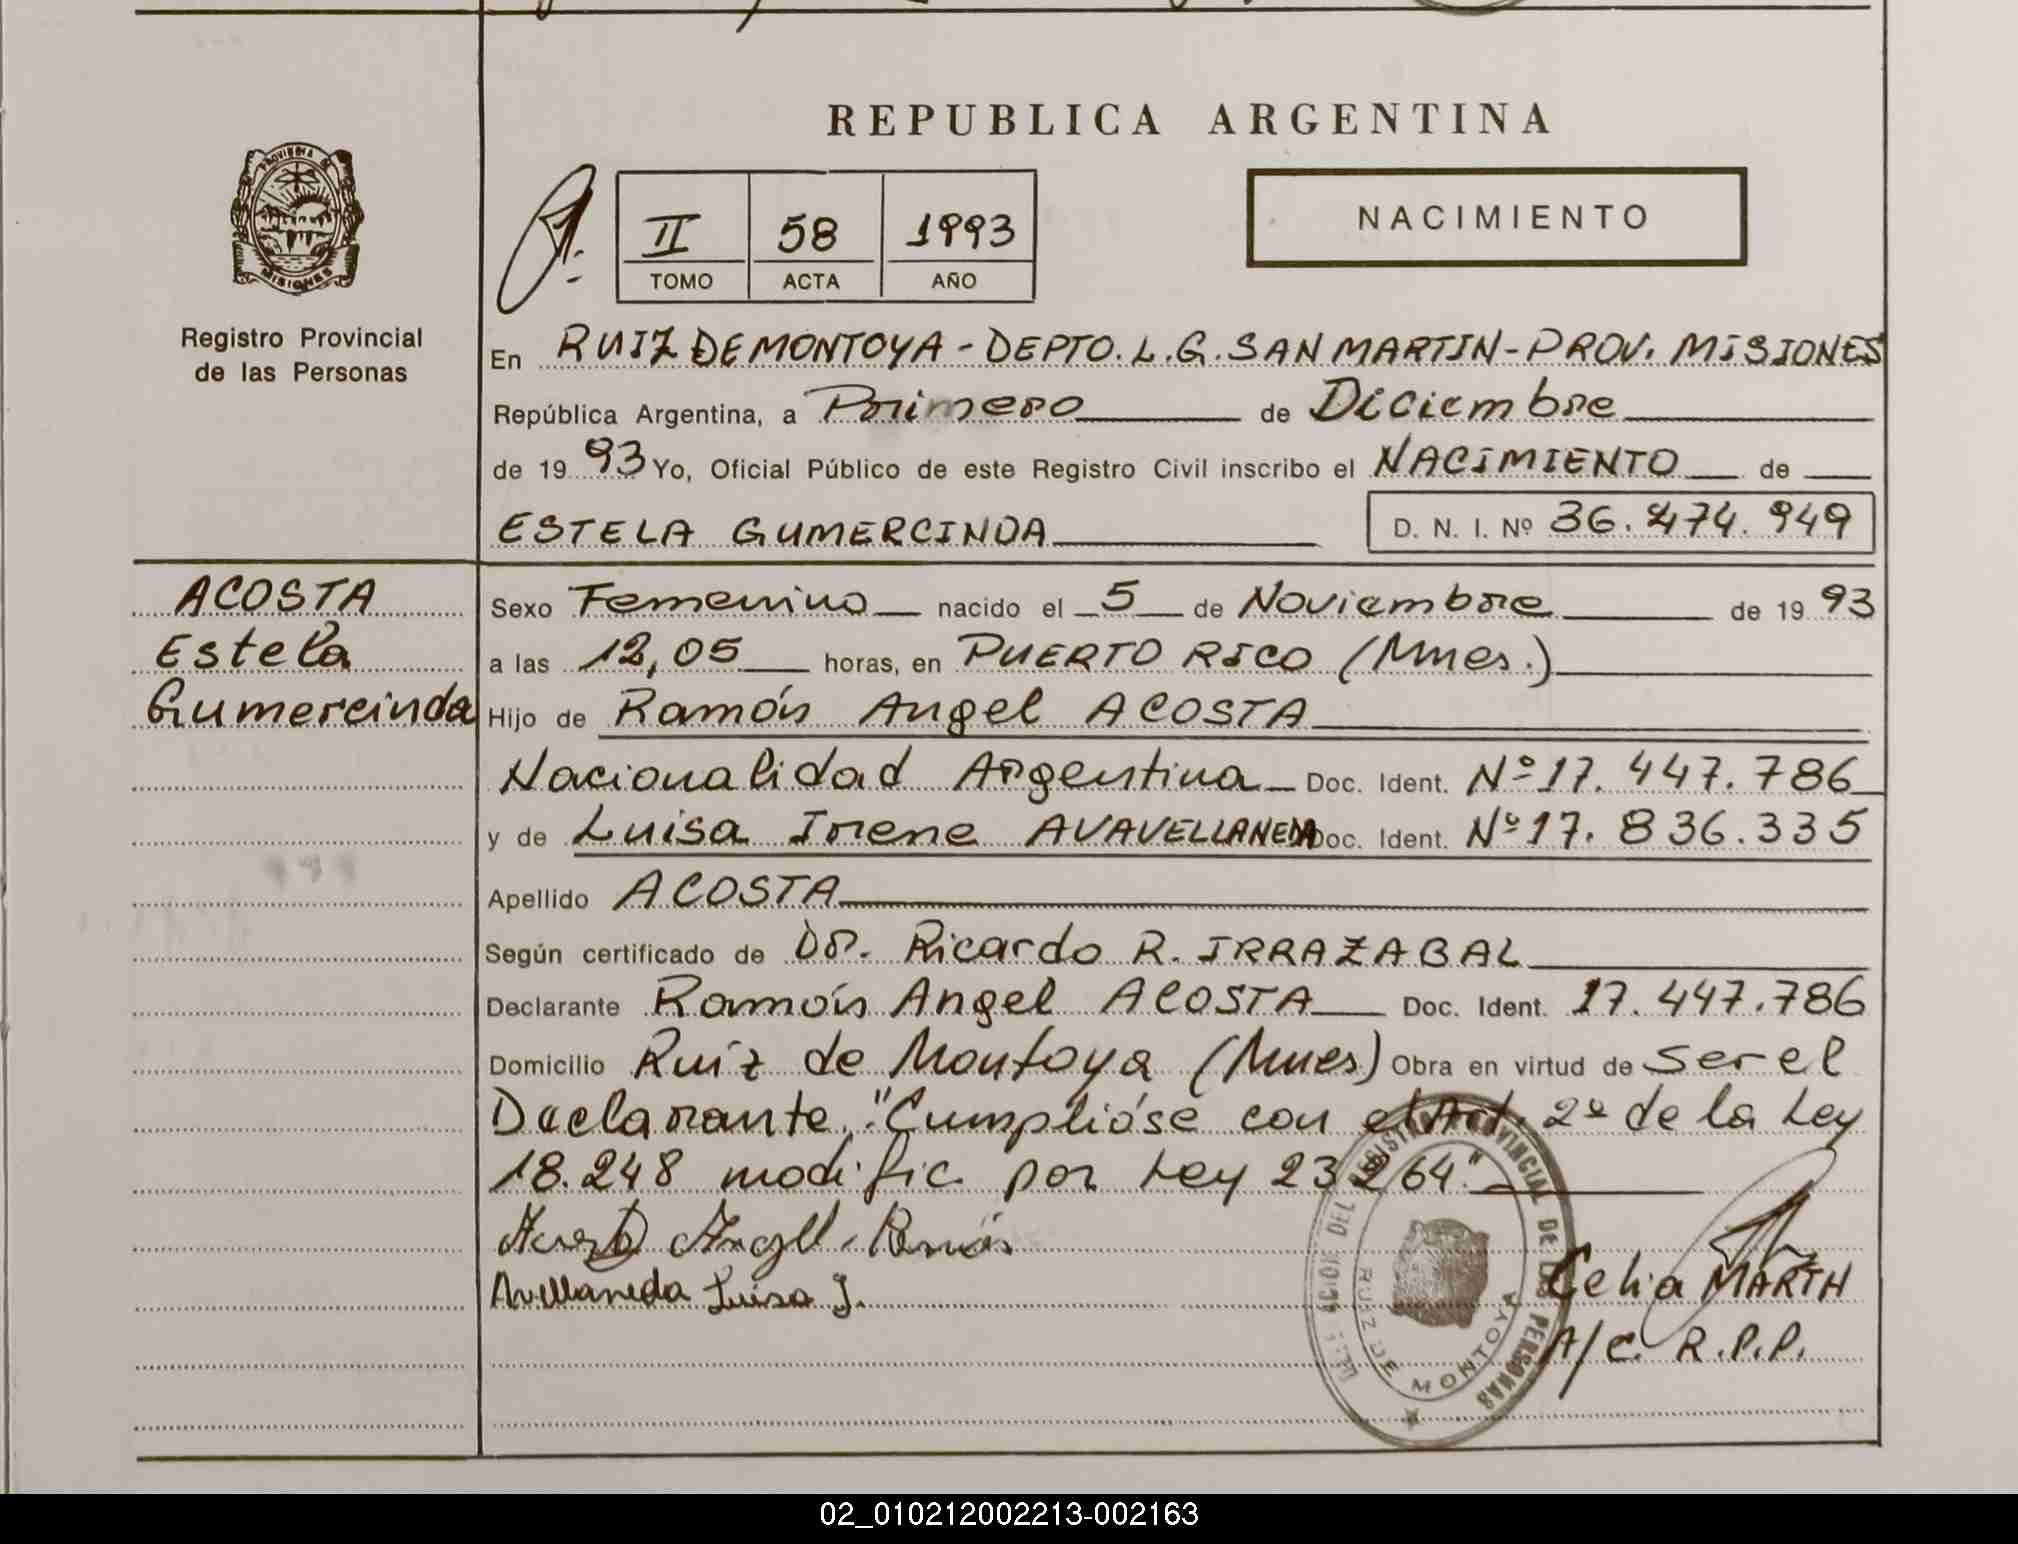 REPUBLICA ARGENTINA
PROVINCIA DE
MISIONES
II 58 1993
TOMO ACTA AÑO
NACIMIENTO
Registro Provincial
de las Personas
En RUIZ DE MONTOYA - DEPTO. L.G. SAN MARTIN - PROV. MISIONES
República Argentina, a Primero de Diciembre
de 19 93 Yo, Oficial Público de este Registro Civil inscribo el NACIMIENTO de
ESTELA GUMERCINDA D. N. I. Nº 36.474.949
ACOSTA
Estela
Gumercinda
Sexo Femenino nacido el 5 de Noviembre de 19 93
a las 12,05 horas, en PUERTO RICO (Mnes.)
Hijo de Ramón Angel ACOSTA
Nacionalidad Argentina Doc. Ident. Nº 17.447.786
y de Luisa Irene AVAVELLANEDA Doc. Ident. Nº 17.836.335
Apellido ACOSTA
Según certificado de Dr. Ricardo R. IRRAZABAL
Declarante Ramón Angel ACOSTA Doc. Ident. 17.447.786
Domicilio Ruíz de Montoya (Mnes) Obra en virtud de ser el
Declarante. "Cumplióse con el Art. 2º de la Ley
18.248 modific. por Ley 23264."
Angel Ramón
Avellaneda Luisa I.
DEL REGISTRO PROVINCIAL DE LAS PERSONAS
RUIZ DE MONTOYA
Celia MARTH
A/C. R.P.P.
02_010212002213-002163